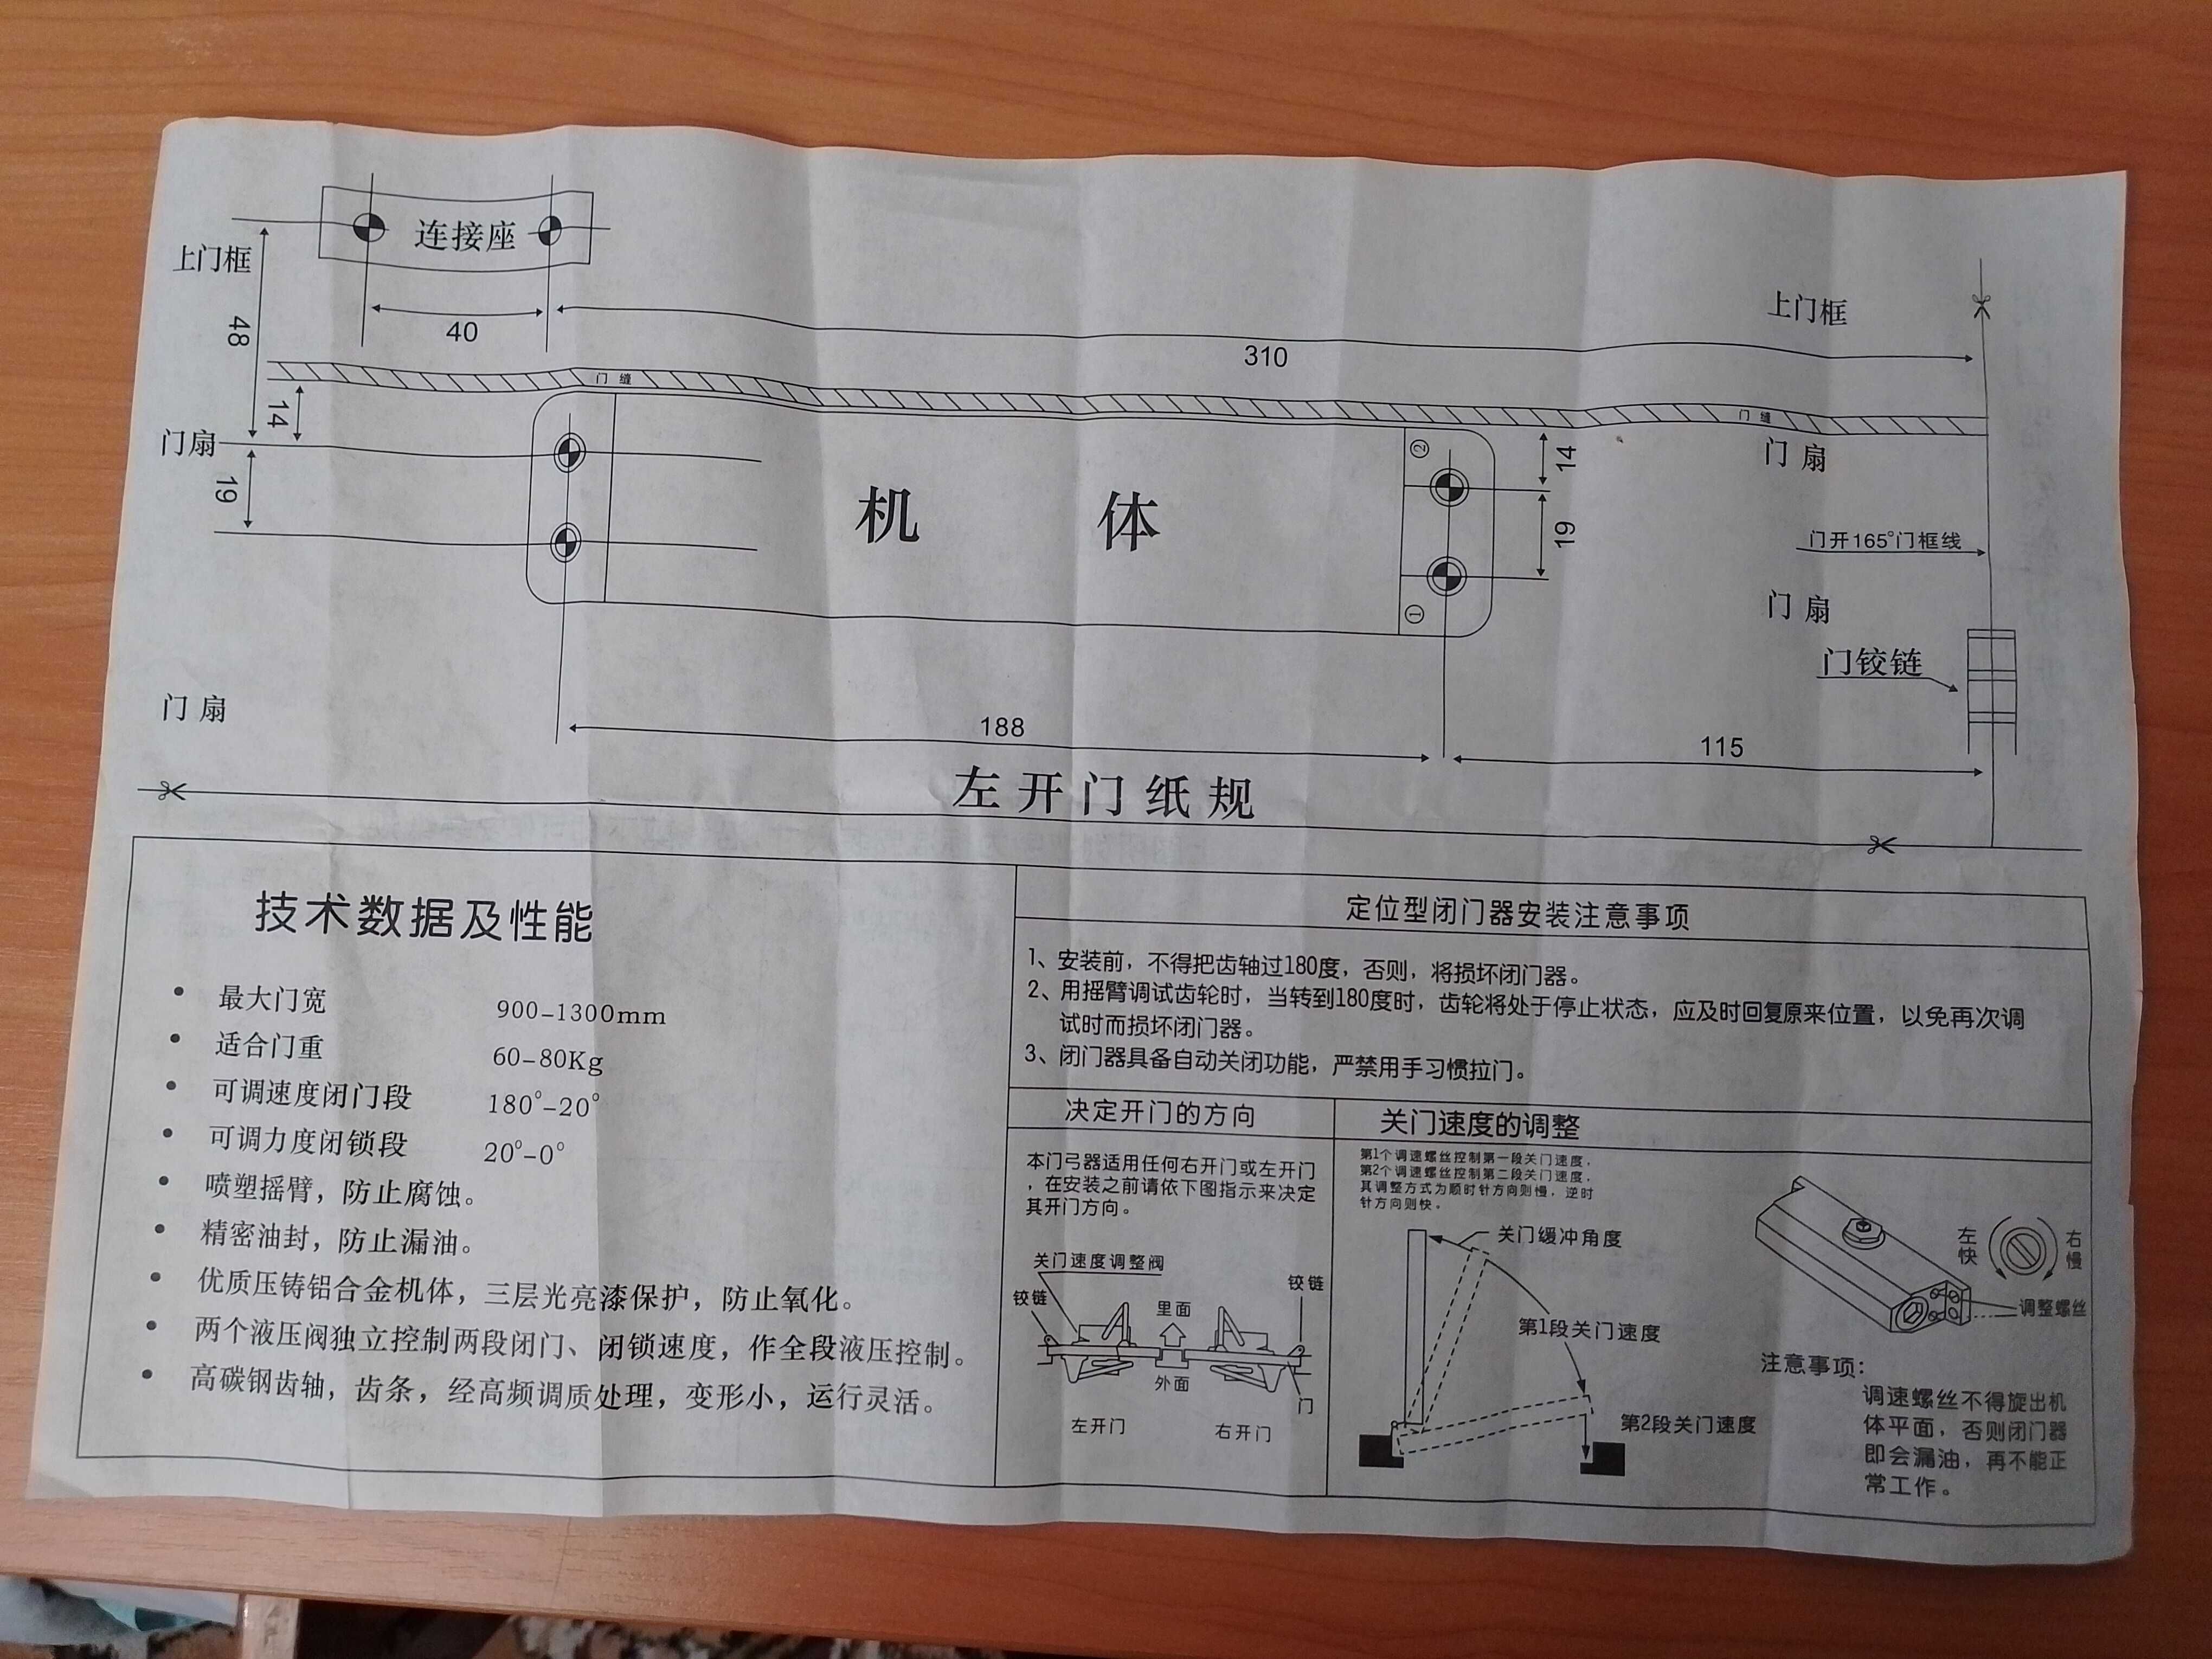 连接座
上门框
48
40
310
上门框
门缝
门缝
14
门扇
19
机 体
②
①
14
19
门扇
门开165°门框线
门扇
门铰链
门扇
188
115
左开门纸规
技术数据及性能
• 最大门宽 900-1300mm
• 适合门重 60-80Kg
• 可调速度闭门段 180°-20°
• 可调力度闭锁段 20°-0°
• 喷塑摇臂，防止腐蚀。
• 精密油封，防止漏油。
• 优质压铸铝合金机体，三层光亮漆保护，防止氧化。
• 两个液压阀独立控制两段闭门、闭锁速度，作全段液压控制。
• 高碳钢齿轴，齿条，经高频调质处理，变形小，运行灵活。
定位型闭门器安装注意事项
1、安装前，不得把齿轴过180度，否则，将损坏闭门器。
2、用摇臂调试齿轮时，当转到180度时，齿轮将处于停止状态，应及时回复原来位置，以免再次调
试时而损坏闭门器。
3、闭门器具备自动关闭功能，严禁用手习惯拉门。
决定开门的方向
本门弓器适用任何右开门或左开门
，在安装之前请依下图指示来决定
其开门方向。
关门速度调整阀
铰链
铰链
里面
外面
门
左开门
右开门
关门速度的调整
第1个调速螺丝控制第一段关门速度，
第2个调速螺丝控制第二段关门速度，
其调整方式为顺时针方向则慢，逆时
针方向则快。
关门缓冲角度
第1段关门速度
第2段关门速度
左快
右慢
调整螺丝
注意事项：
调速螺丝不得旋出机
体平面，否则闭门器
即会漏油，再不能正
常工作。